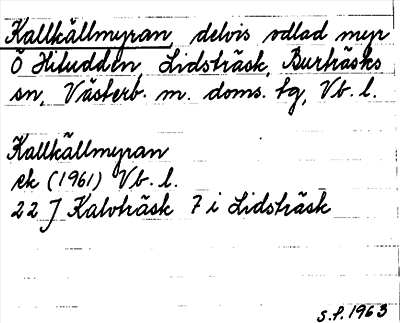 Kallkällmyran, delvis odlad myr
Ö Hitudden Lidsträsk, Burträsks
sn, Västerb. m. doms. tg, Vb. l.
Kallkällmyran
ek (1961) Vb. l.
22 J Kalvträsk 7 i Lidsträsk
S.P. 1963